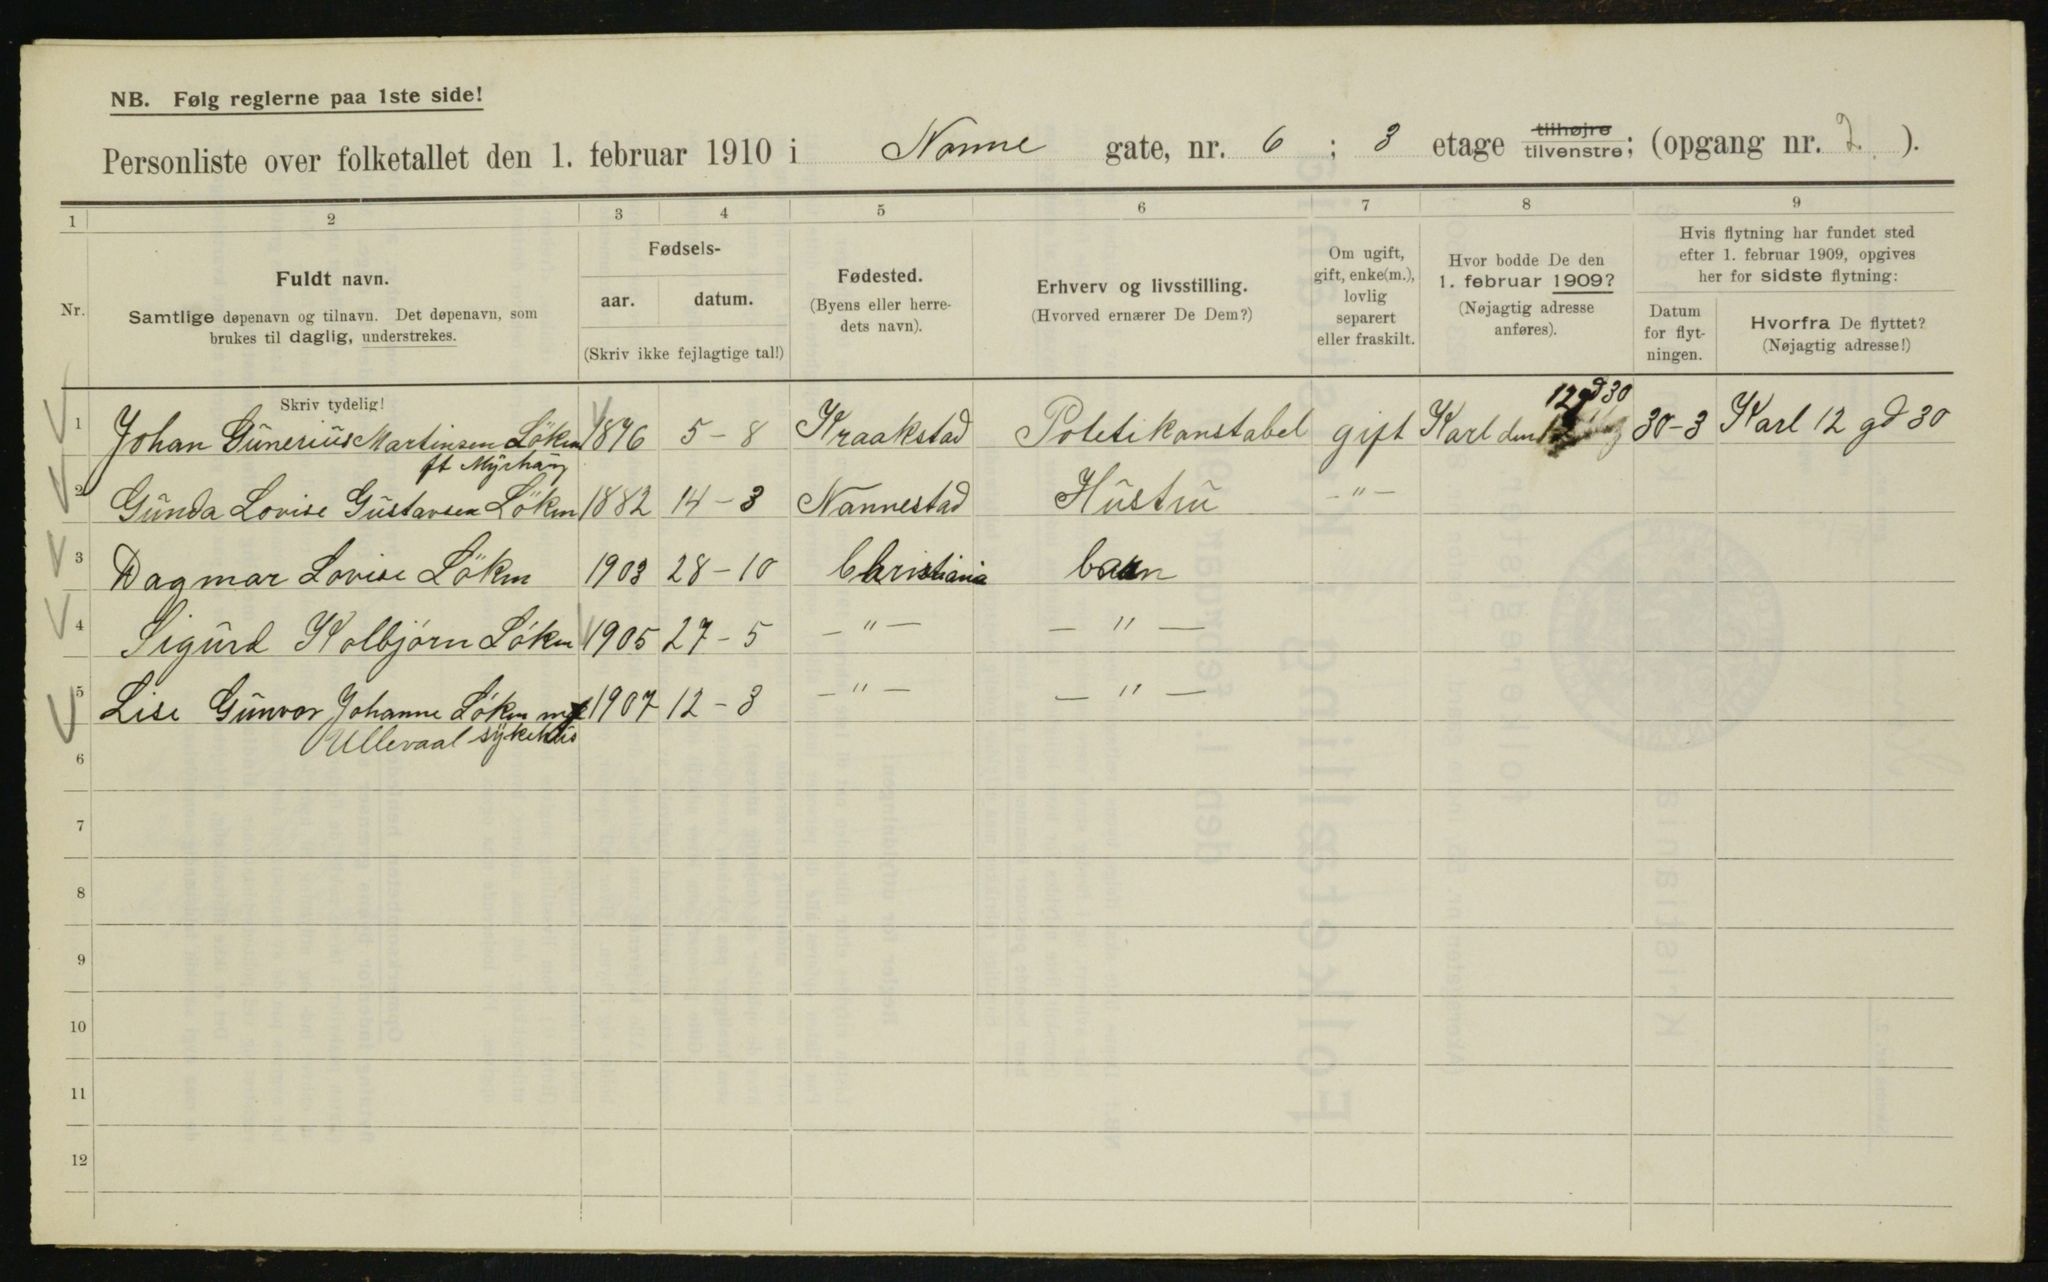 NB. Følg reglerne paa 1ste side!
Personliste over folketallet den 1. februar 1910 i Nanne gate, nr. 6 ; 3 etage tilhøjre tilvenstre; (opgang nr. 2. ).
1 2 3 4 5 6 7 8 9
Nr.
Fuldt navn.
Samtlige døpenavn og tilnavn. Det døpenavn, som
brukes til daglig, understrekes.
Fødsels-
aar. datum.
(Skriv ikke fejlagtige tal!)
Fødested.
(Byens eller herre-
dets navn).
Erhverv og livsstilling.
(Hvorved ernærer De Dem?)
Om ugift,
gift, enke(m.),
lovlig
separert
eller fraskilt.
Hvor bodde De den
1. februar 1909?
(Nøjagtig adresse
anføres).
Hvis flytning har fundet sted
efter 1. februar 1909, opgives
her for sidste flytning:
Datum
for flyt-
ningen.
Hvorfra De flyttet?
(Nøjagtig adresse!)
Skriv tydelig!
12 gd 30
1 Johan Gunerius Martinsen Löken 1876 5-8 Kraakstad Potetikonstabel gift Karl den 12 30-3 Karl 12 gd 30
ft Myrhaug
2 Gunda Lovise Gustavsen Löken 1882 14-3 Nannestad Hustru -"-
3 Dagmar Lovise Löken 1903 28-10 Christiania barn
4 Sigurd Kolbjörn Löken 1905 27-5 -"- -"-
5 Lise Gunvor Johanne Löken 1907 12-3 -"- -"-
Ullevaal sykehus
6
7
8
9
10
11
12